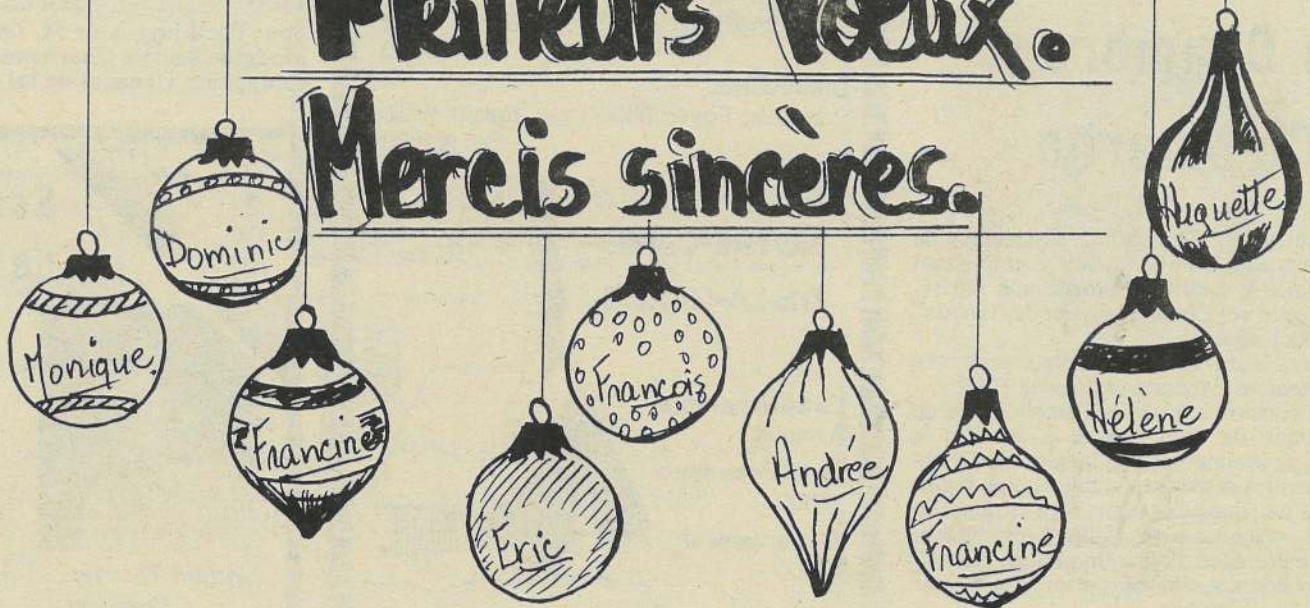 Meilleurs Voeux.
Mercis sincères.
Monique
Dominic
Francine
Eric
François
Andrée
Francine
Hélène
Huguette